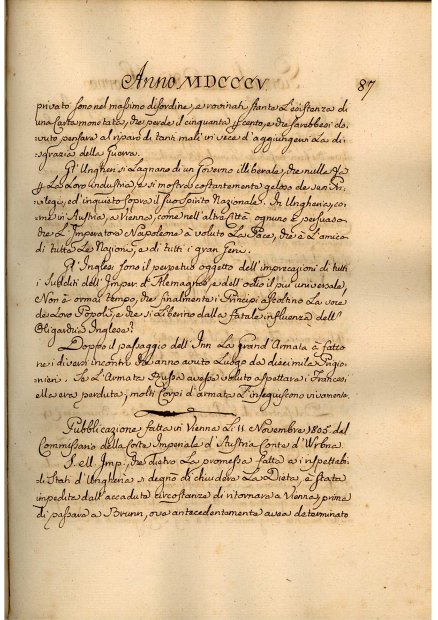 Anno MDCCCV. 87
privato sono nel massimo disordine, e rovinati stante L'esistenza di
una Carta monetata, che perde il cinquanta p cento, e che sarebbesi do-
vuto pensare al riparo di tanti mali in vece d'aggiungervi La di-
sgrazia della Guerra.
Gl'Ungheri si Lagnano di un Governo illiberale, che nulla fa
p La Loro industria, e si mostra costantemente geloso de suoi Pri-
vilegj, ed inquieto sopra il suo Spirito Nazionale. In Ungheria, co-
me in Austria, a Vienna, come nell'altre Città ognuno è persuaso
che L'Imperatore Napoleone à voluto La Pace, che è L'amico
di tutte Le Nazioni, e di tutti i gran Genj.
Gl'Inglesi sono il perpetuo oggetto dell'imprecazioni di tutti
i Sudditi dell'Imper. d'Alemagna, e dell'odio il più universale,
Non è ormai tempo, che finalmente i Principi ascoltino La voce
de Loro Popoli, e che si Liberino dalla fatale influenza dell'
Oligarchia Inglese?
Doppo il passaggio dell'Inn La grand'Armata à fatto
ne i diversi incontri che anno avuto Luogo da diecimila Prigio-
nieri. Se L'Armata Russa avesse voluto aspettare i Francesi,
ella era perduta, molti Corpi d'armata L'inseguiscono vivamente.
Pubblicazione fatta in Vienna Li 11. Novembre 1805. dal
Commissario della Corte Imperiale d'Austria Conte d'Wrbna.
S. M. Imp., che dietro La promessa fatta a i rispettabi-
li Stati d'Ungheria si degnò di chiudere La Dieta, è stata
impedita dall'accadute circostanze di ritornare a Vienna, prima
di passare a Brunn, ove antecedentemente avea determinato